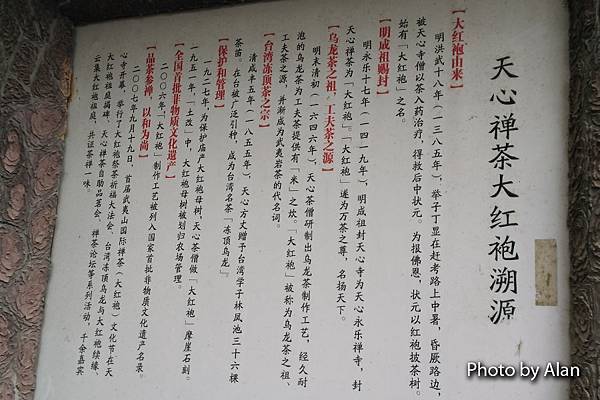 天心禅茶大红袍溯源
【大红袍由来】
明洪武十八年(一三八五年),举子丁显在赶考路上中暑,昏厥路边,
被天心寺僧以茶入药治疗,得救后中状元。为报佛恩,状元以红袍披茶树。
始有「大红袍」之名。
【明成祖赐封】
明永乐十七年(一四一九年),明成祖封天心寺为天心永乐禅寺,封
天心禅茶为「大红袍」。「大红袍」遂为万茶之尊,名扬天下。
【乌龙茶之祖、工夫茶之源】
明末清初(一六四六年),天心茶僧研制出乌龙茶制作工艺,经久耐
泡的乌龙茶为工夫茶提供有「米」之炊。「大红袍」被称为乌龙茶之祖、
工夫茶之源,并渐成为武夷岩茶的代名词。
【台湾冻顶茶之宗】
清咸丰五年(一八五五年),天心方丈赠于台湾学子林凤池三十六棵
茶苗。在台被广泛引种,成为台湾名茶「冻顶乌龙」。
【保护和管理】
一九二七年,为保护庙产大红袍母树,天心茶僧做「大红袍」摩崖石刻。
一九五一年,「土改」中,大红袍母树被划归农场管理。
【全国首批非物质文化遗产】
二〇〇六年,「大红袍」制作工艺被列入国家首批非物质文化遗产名录。
【品茶参禅,以和为尚】
二〇〇七年九月十九日,首届武夷山国际禅茶(大红袍)文化节在天
心寺开幕,举行了大红袍祭茶祈福大法会、台湾冻顶乌龙与大红袍续缘、
大红袍祖庭揭碑、天心禅茶自助品茗会、禅茶论坛等系列活动,千余嘉宾
云集大红袍祖庭,共证茶禅一味。
Photo by Alan